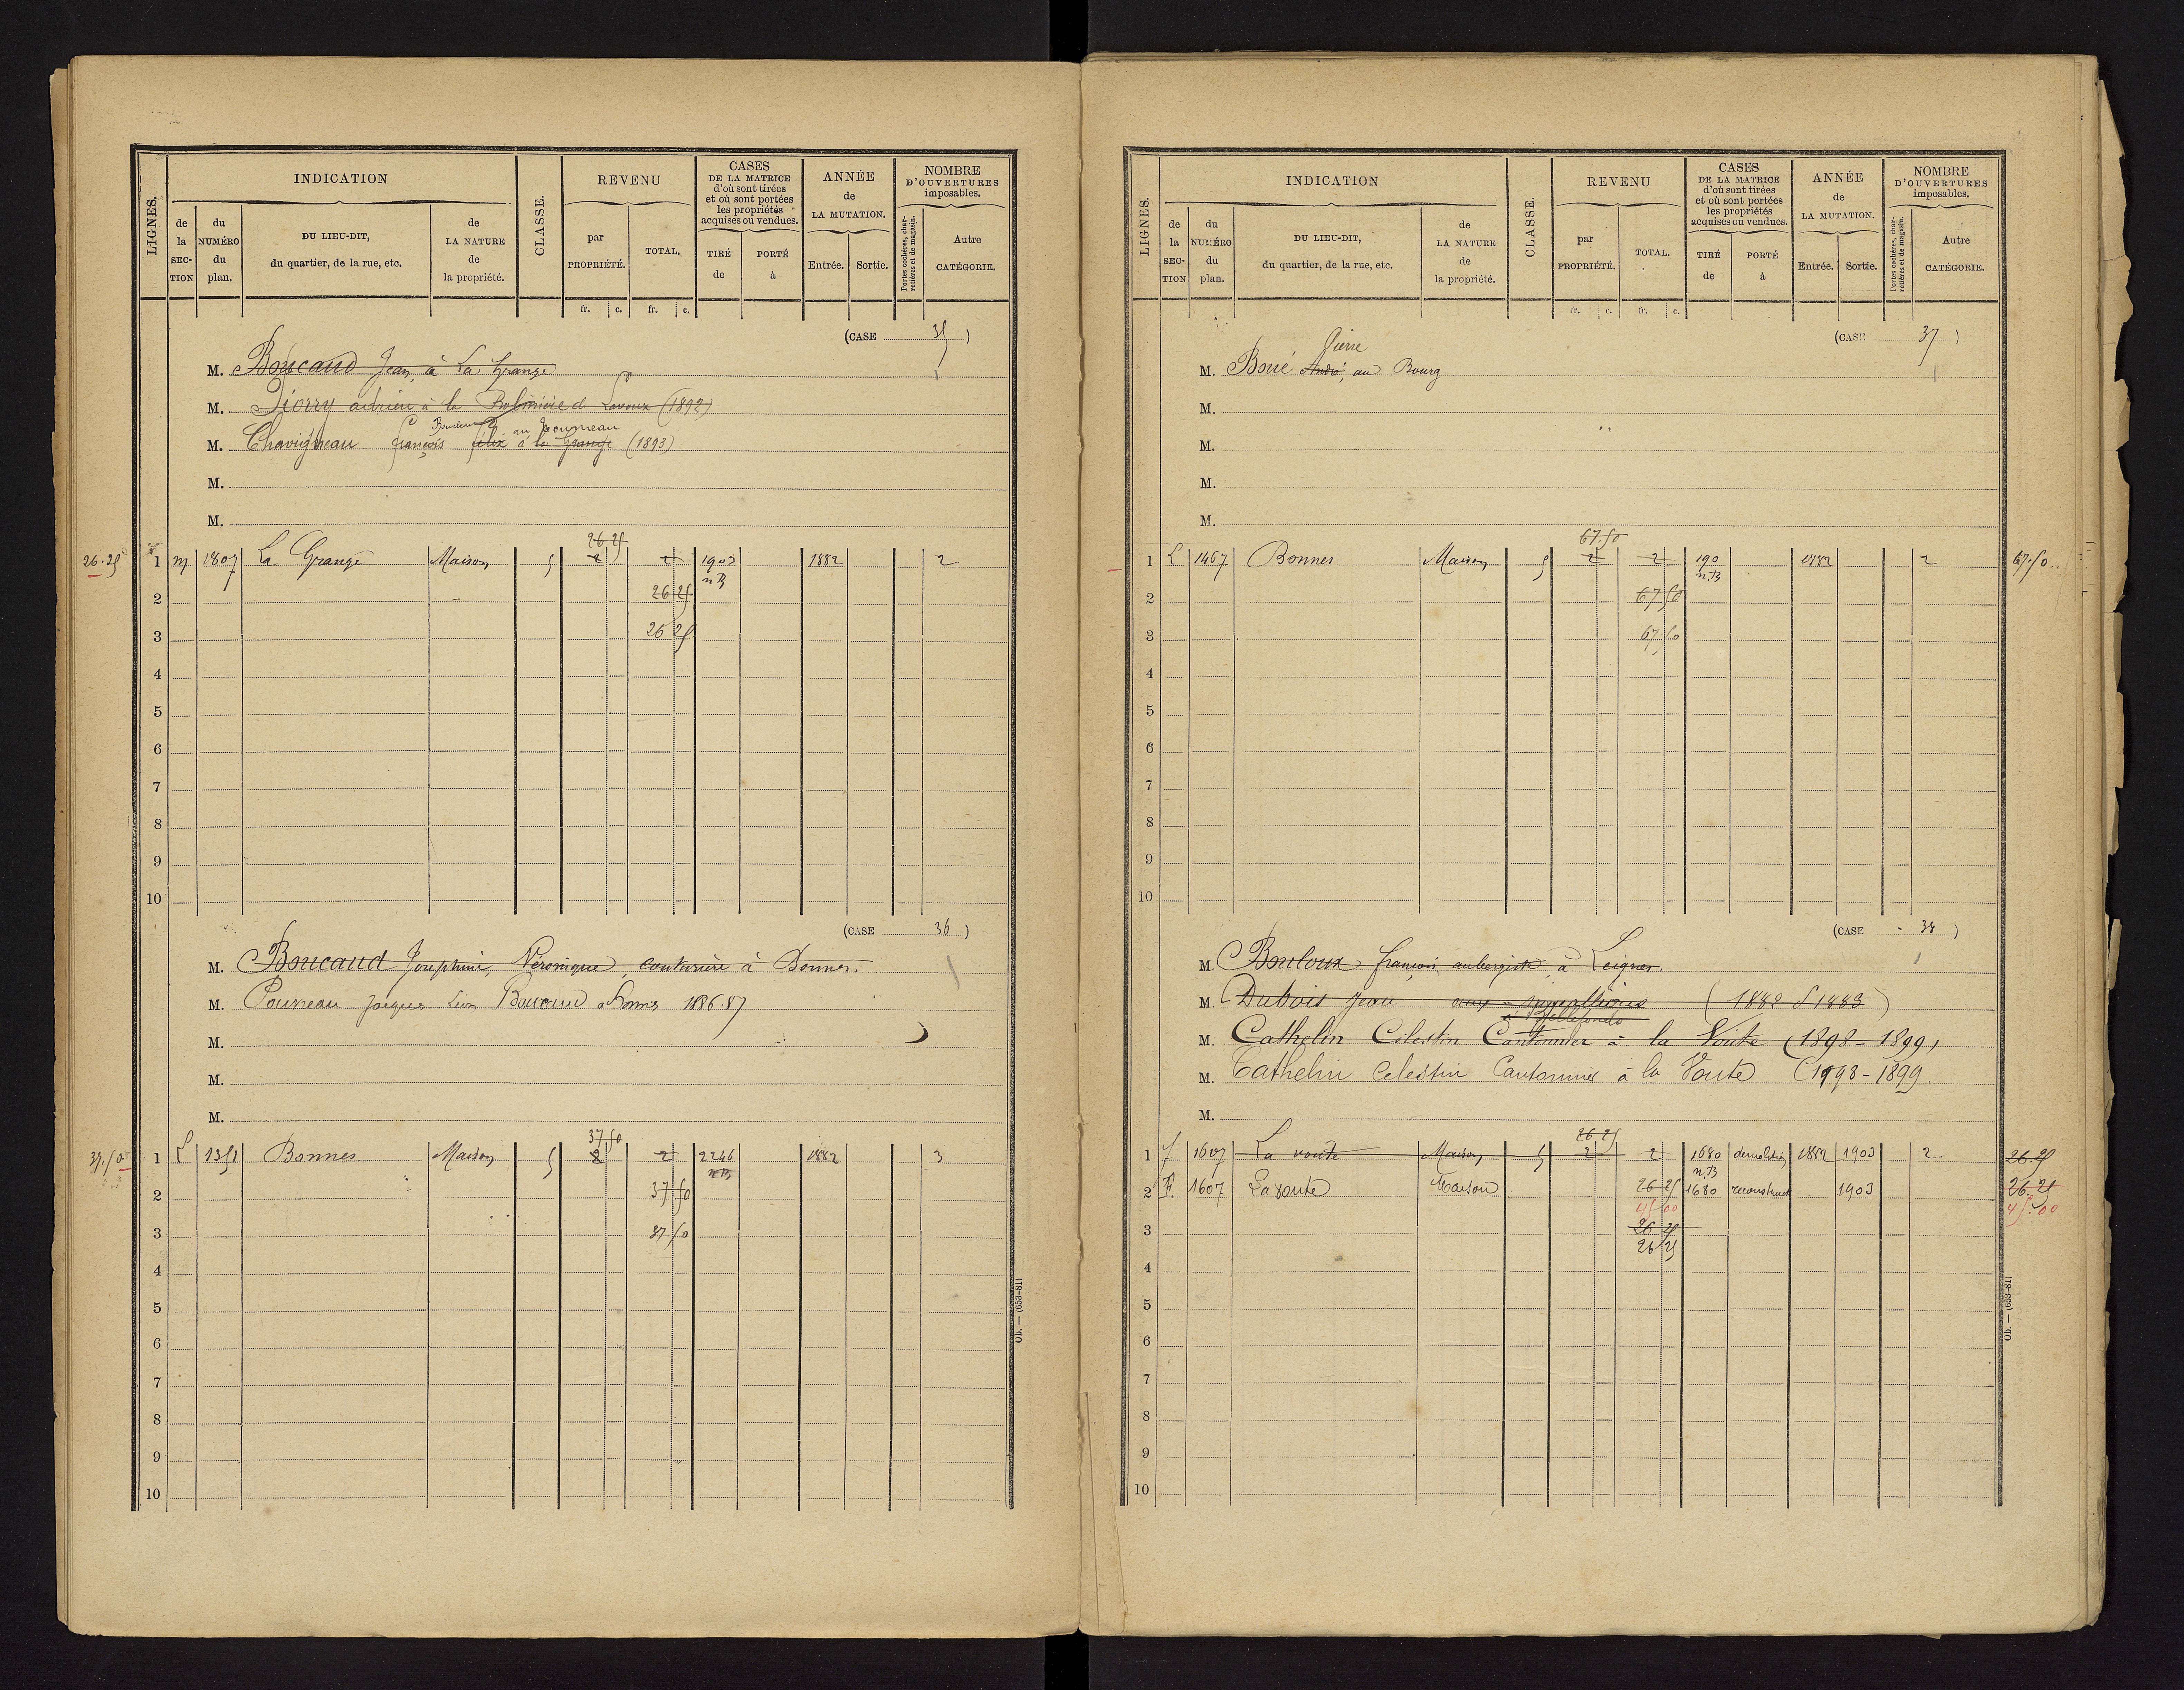 LIGNES.
INDICATION
de la SEC-TION
du NUMÉRO du plan.
DU LIEU-DIT, du quartier, de la rue, etc.
de LA NATURE de la propriété.
CLASSE.
REVENU
par PROPRIÉTÉ.
TOTAL.
fr. c. fr. c.
CASES DE LA MATRICE d'où sont tirées et où sont portées les propriétés acquises ou vendues.
TIRÉ de
PORTÉ à
ANNÉE de LA MUTATION.
Entrée. Sortie.
NOMBRE D'OUVERTURES imposables.
Portes cochères, charretières et de magasin.
Autre CATÉGORIE.
(CASE 35)
M. Boucaud Jean, à La Grange
M. Diorry adrien à la de Lavoux (1892)
au Tourneau
M. Chavigneau françois félix à la Grange (1893)
M.
M.
26 25
26.25 1 m 1807 La Grange Maison 5 2 2 1903 1882 2
n B
2 26 25
3 26 25
4
5
6
7
8
9
10
(CASE 36)
M. Boucaud Josephine, Véronique, couturière à Bonnes.
M. Pouvreau Jacques Léon Boucaud à Bonnes 1886-87
M.
M.
M.
37 50
37.50 1 L 1351 Bonnes Maison 5 2 2 2246 1882 3
n B
2 37 50
3 37 50
4
5
6
7
8
9
10
Ob. — (653-81)
LIGNES.
INDICATION
de la SEC-TION
du NUMÉRO du plan.
DU LIEU-DIT, du quartier, de la rue, etc.
de LA NATURE de la propriété.
CLASSE.
REVENU
par PROPRIÉTÉ.
TOTAL.
fr. c. fr. c.
CASES DE LA MATRICE d'où sont tirées et où sont portées les propriétés acquises ou vendues.
TIRÉ de
PORTÉ à
ANNÉE de LA MUTATION.
Entrée. Sortie.
NOMBRE D'OUVERTURES imposables.
Portes cochères, charretières et de magasin.
Autre CATÉGORIE.
(CASE 37)
Pierre
M. Boué André, au Bourg
M.
M.
M.
M.
67.50
1 L 1467 Bonnes Maison 5 2 2 190 1882 2 67.50
n.B
2 67 50
3 67 50
4
5
6
7
8
9
10
(CASE 38)
M. Bouloux françois, aubergiste, à Leignes.
M. Dubois Jean (1882 & 1883)
à Bellefonds
M. Cathelin Célestin Cantonnier à la Voûte (1898-1899)
M. Cathelin Celestin Cantonnier à la Voute (1898-1899
M.
26 25
1 F 1607 La voute Maison 5 2 2 1680 demolition 1882 1903 2 26.25
n.B
2 F. 1607 La voute Maison 26 25 1680 reconstruct 1903 26.25
45 00 45.00
3 26 25
26 25
4
5
6
7
8
9
10
Ob. — (653-81)